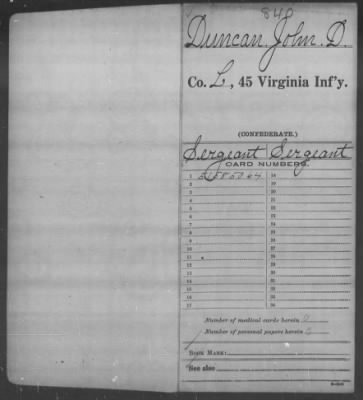 840
Duncan, John. D.
Co. L, 45 Virginia Inf'y.
(CONFEDERATE.)
Sergeant Sergeant
CARD NUMBERS.
1 18
2 19
3 20
4 21
5 22
6 23
7 24
8 25
9 26
10 27
11 28
12 29
13 30
14 31
15 32
16 33
17 34
Number of medical cards herein 0
Number of personal papers herein 0
BOOK MARK:
See also